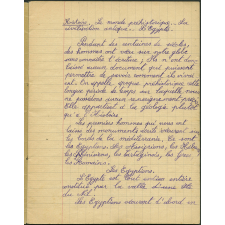 Histoire. Le monde préhistorique. La
civilisation antique. L'Egypte.
Pendant des centaines de siècles,
des hommes ont vécu sur notre globe
sans connaître l'écriture ; ils n'ont donc
laissé aucun document qui puissent
permettre de savoir comment ils vivai
ent. On appelle époque préhistorique cette
longue période de temps sur laquelle nous
ne possédons aucun renseignement précis.
Elle appartient à la géologie plutôt
qu'à l'Histoire.
Les premiers hommes qui nous ont
laissé des monuments écrits vécurent sur
les bords de la méditerranée. Ce sont
les Egyptiens, les Assyriens, les Hébreux
les Phéniciens, les Carthaginois, les Grecs
les Romains.
Les Egyptiens.
L'Egypte est tout entière
constitué par la vallée d'une
du Nil.
Les Egyptiens eurent d'abord un